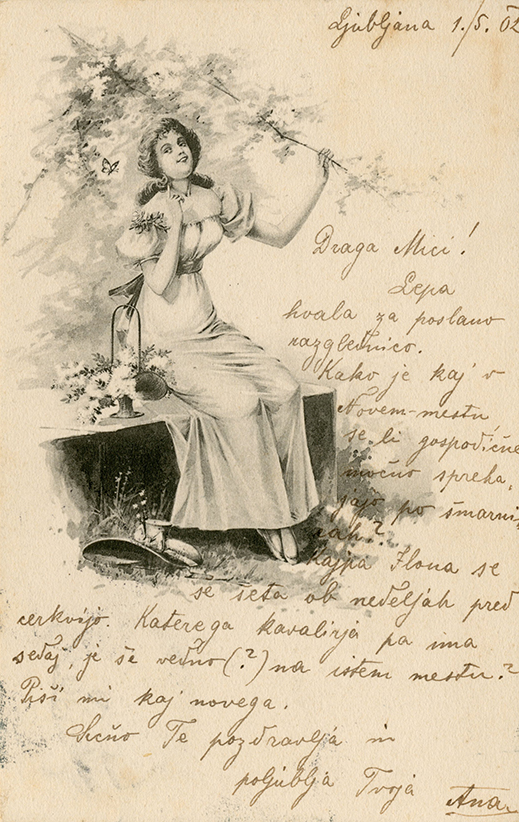 Ljubljana 1./5. 02
Draga Mici!
Lepa
hvala za poslano
razglednico.
Kako je kaj v
Novem-mestu
se li gospodične
močno spreha,
jajo po šmarni,
cah?
Kajpa Ilona se
se šeta ob nedeljah pred
cerkvijo. Katerega kavalirja pa ima
sedaj, je še vedno (?) na istem mestu?
Piši mi kaj novega.
Srčno Te pozdravlja in
poljublja Tvoja Ana